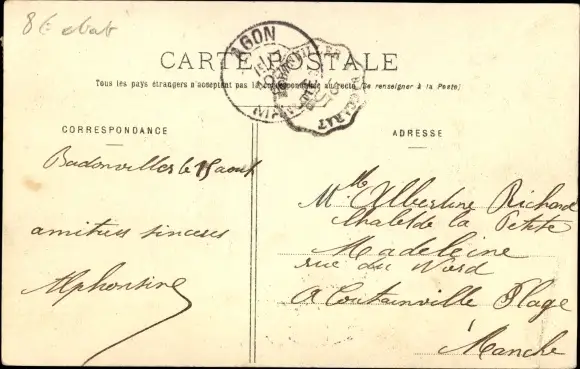 AGON
BACCARAT
CARTE POSTALE
Tous les pays étrangers n'acceptent pas la correspondance au recto (Se renseigner à la Poste)
CORRESPONDANCE
ADRESSE
Badonviller le 15 aout
amitiés sincères
Alphonsine
Mlle Albertine Richard
Chalet de la Petite
Madeleine
rue du Nord
A Coutainville Plage
Manche